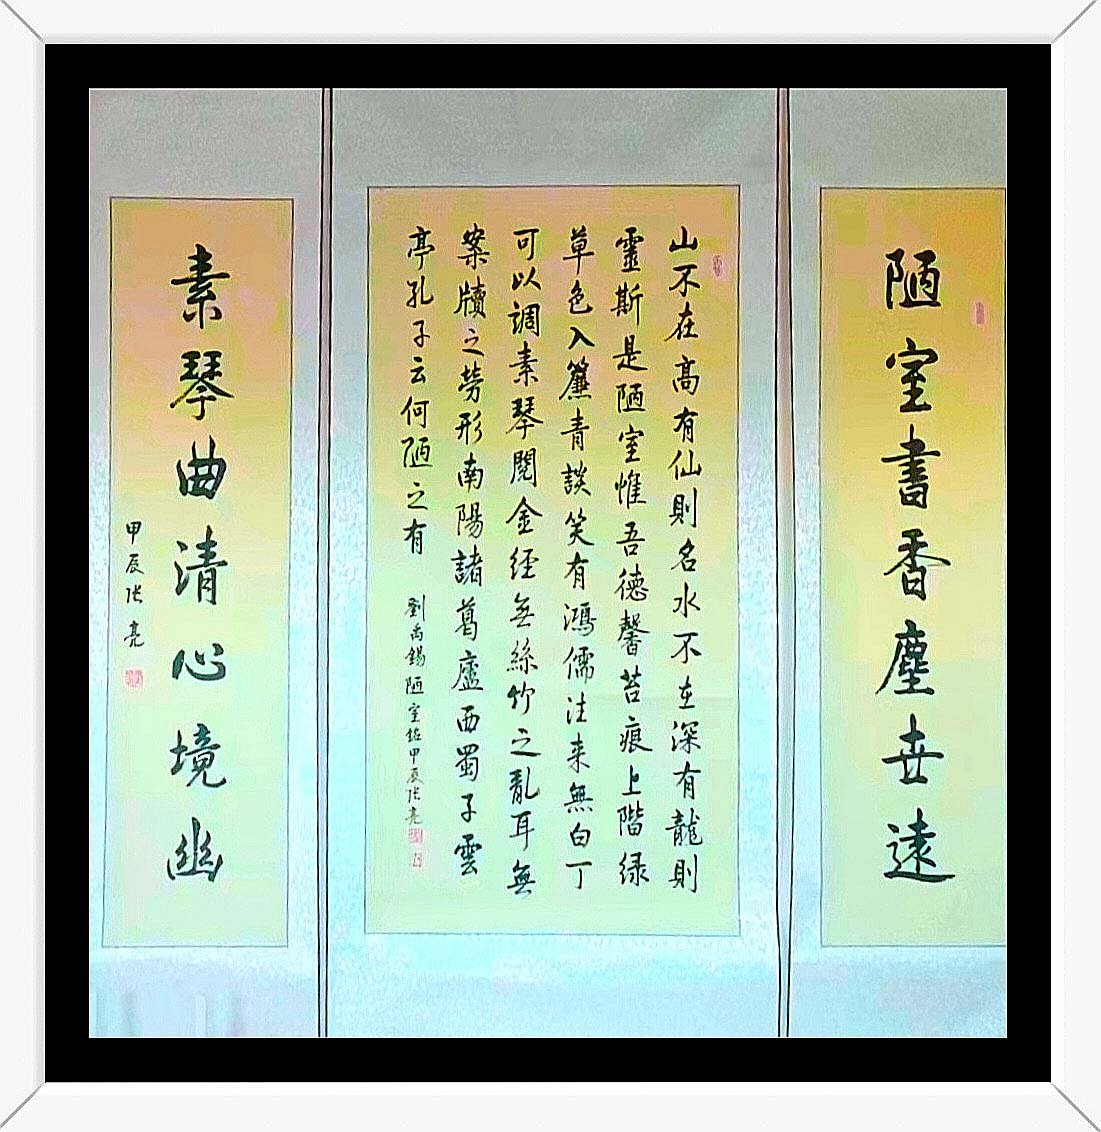 陋室書香塵世遠
山不在高有仙則名水不在深有龍則
靈斯是陋室惟吾德馨苔痕上階緑
草色入簾青談笑有鴻儒往来無白丁
可以調素琴閱金經無絲竹之亂耳無
案牘之勞形南陽諸葛廬西蜀子雲
亭孔子云何陋之有
劉禹錫陋室銘甲辰张亮
素琴曲清心境幽
甲辰张亮